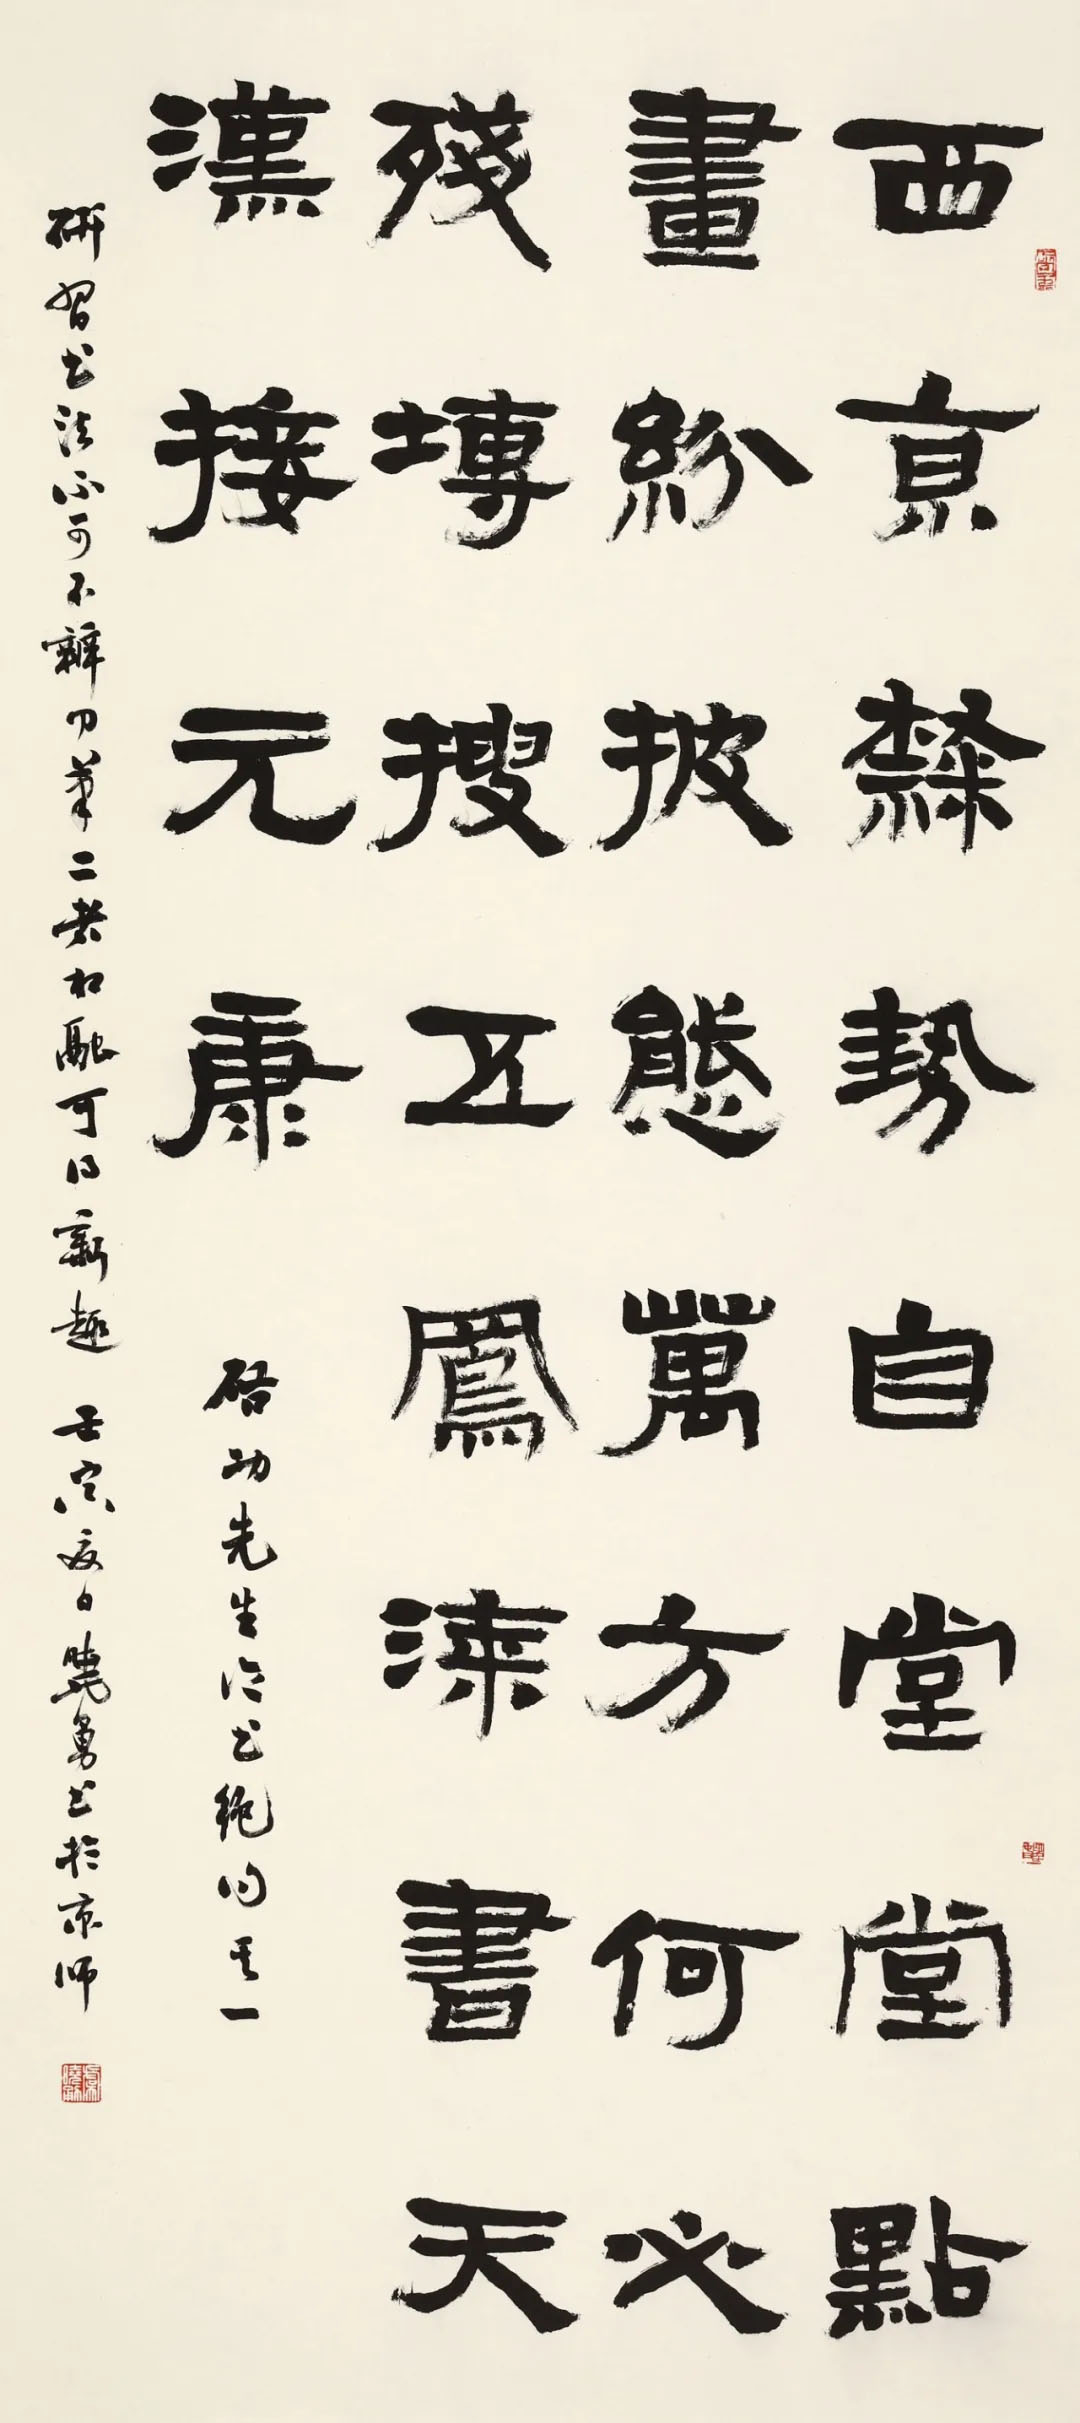 西京隸勢自堂堂點
畫紛披態萬方何必
殘塼搜五鳳漆書天
漢接元康
启功先生论书絕句其一
研習书法不可不辨刀筆二者相融可得新趣 壬寅夏日曉勇书於京師